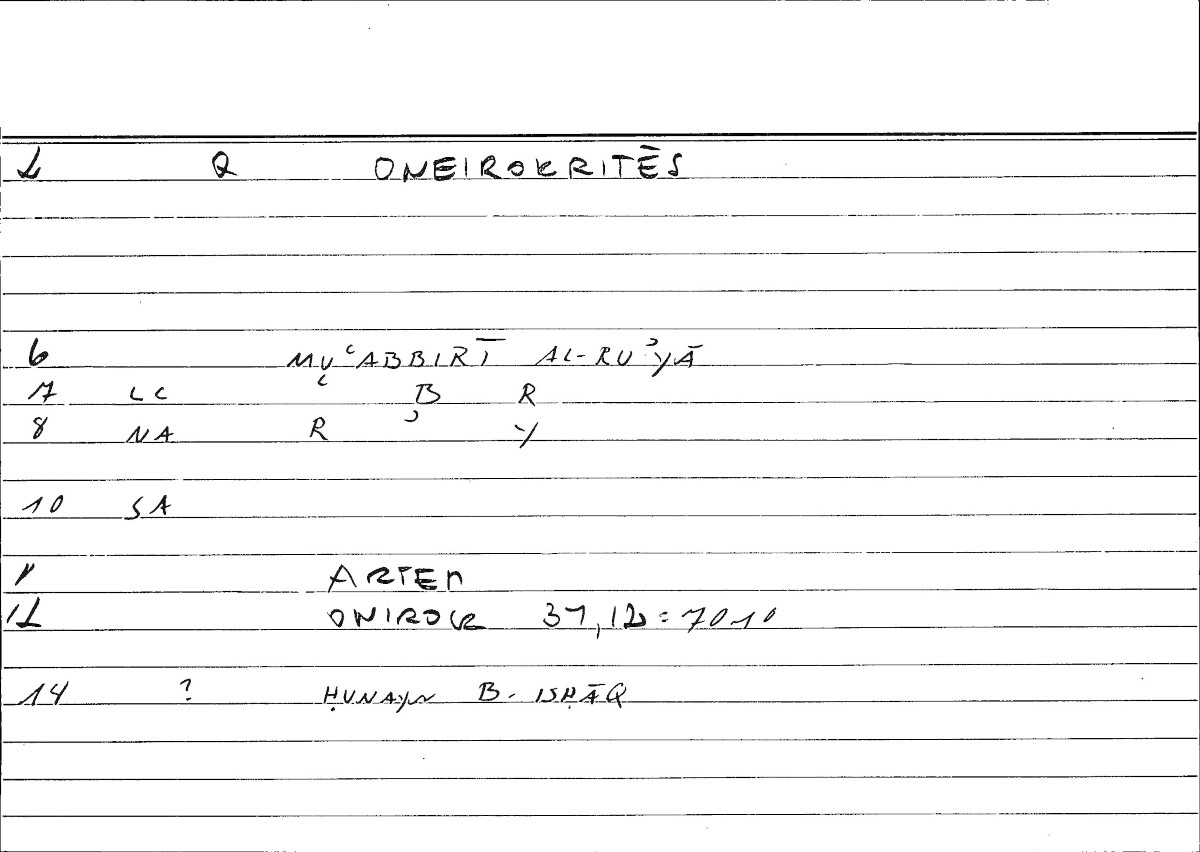 2 Q ONEIROKRITĒS
6 MUʿABBIRĪ AL-RUʾYĀ
7 LC ʿ B R
8 NA R ʾ Y
10 SA
ARTEM
12 ONIROCR 31,12 = 7010
14 ? ḤUNAYN B. ISḤĀQ